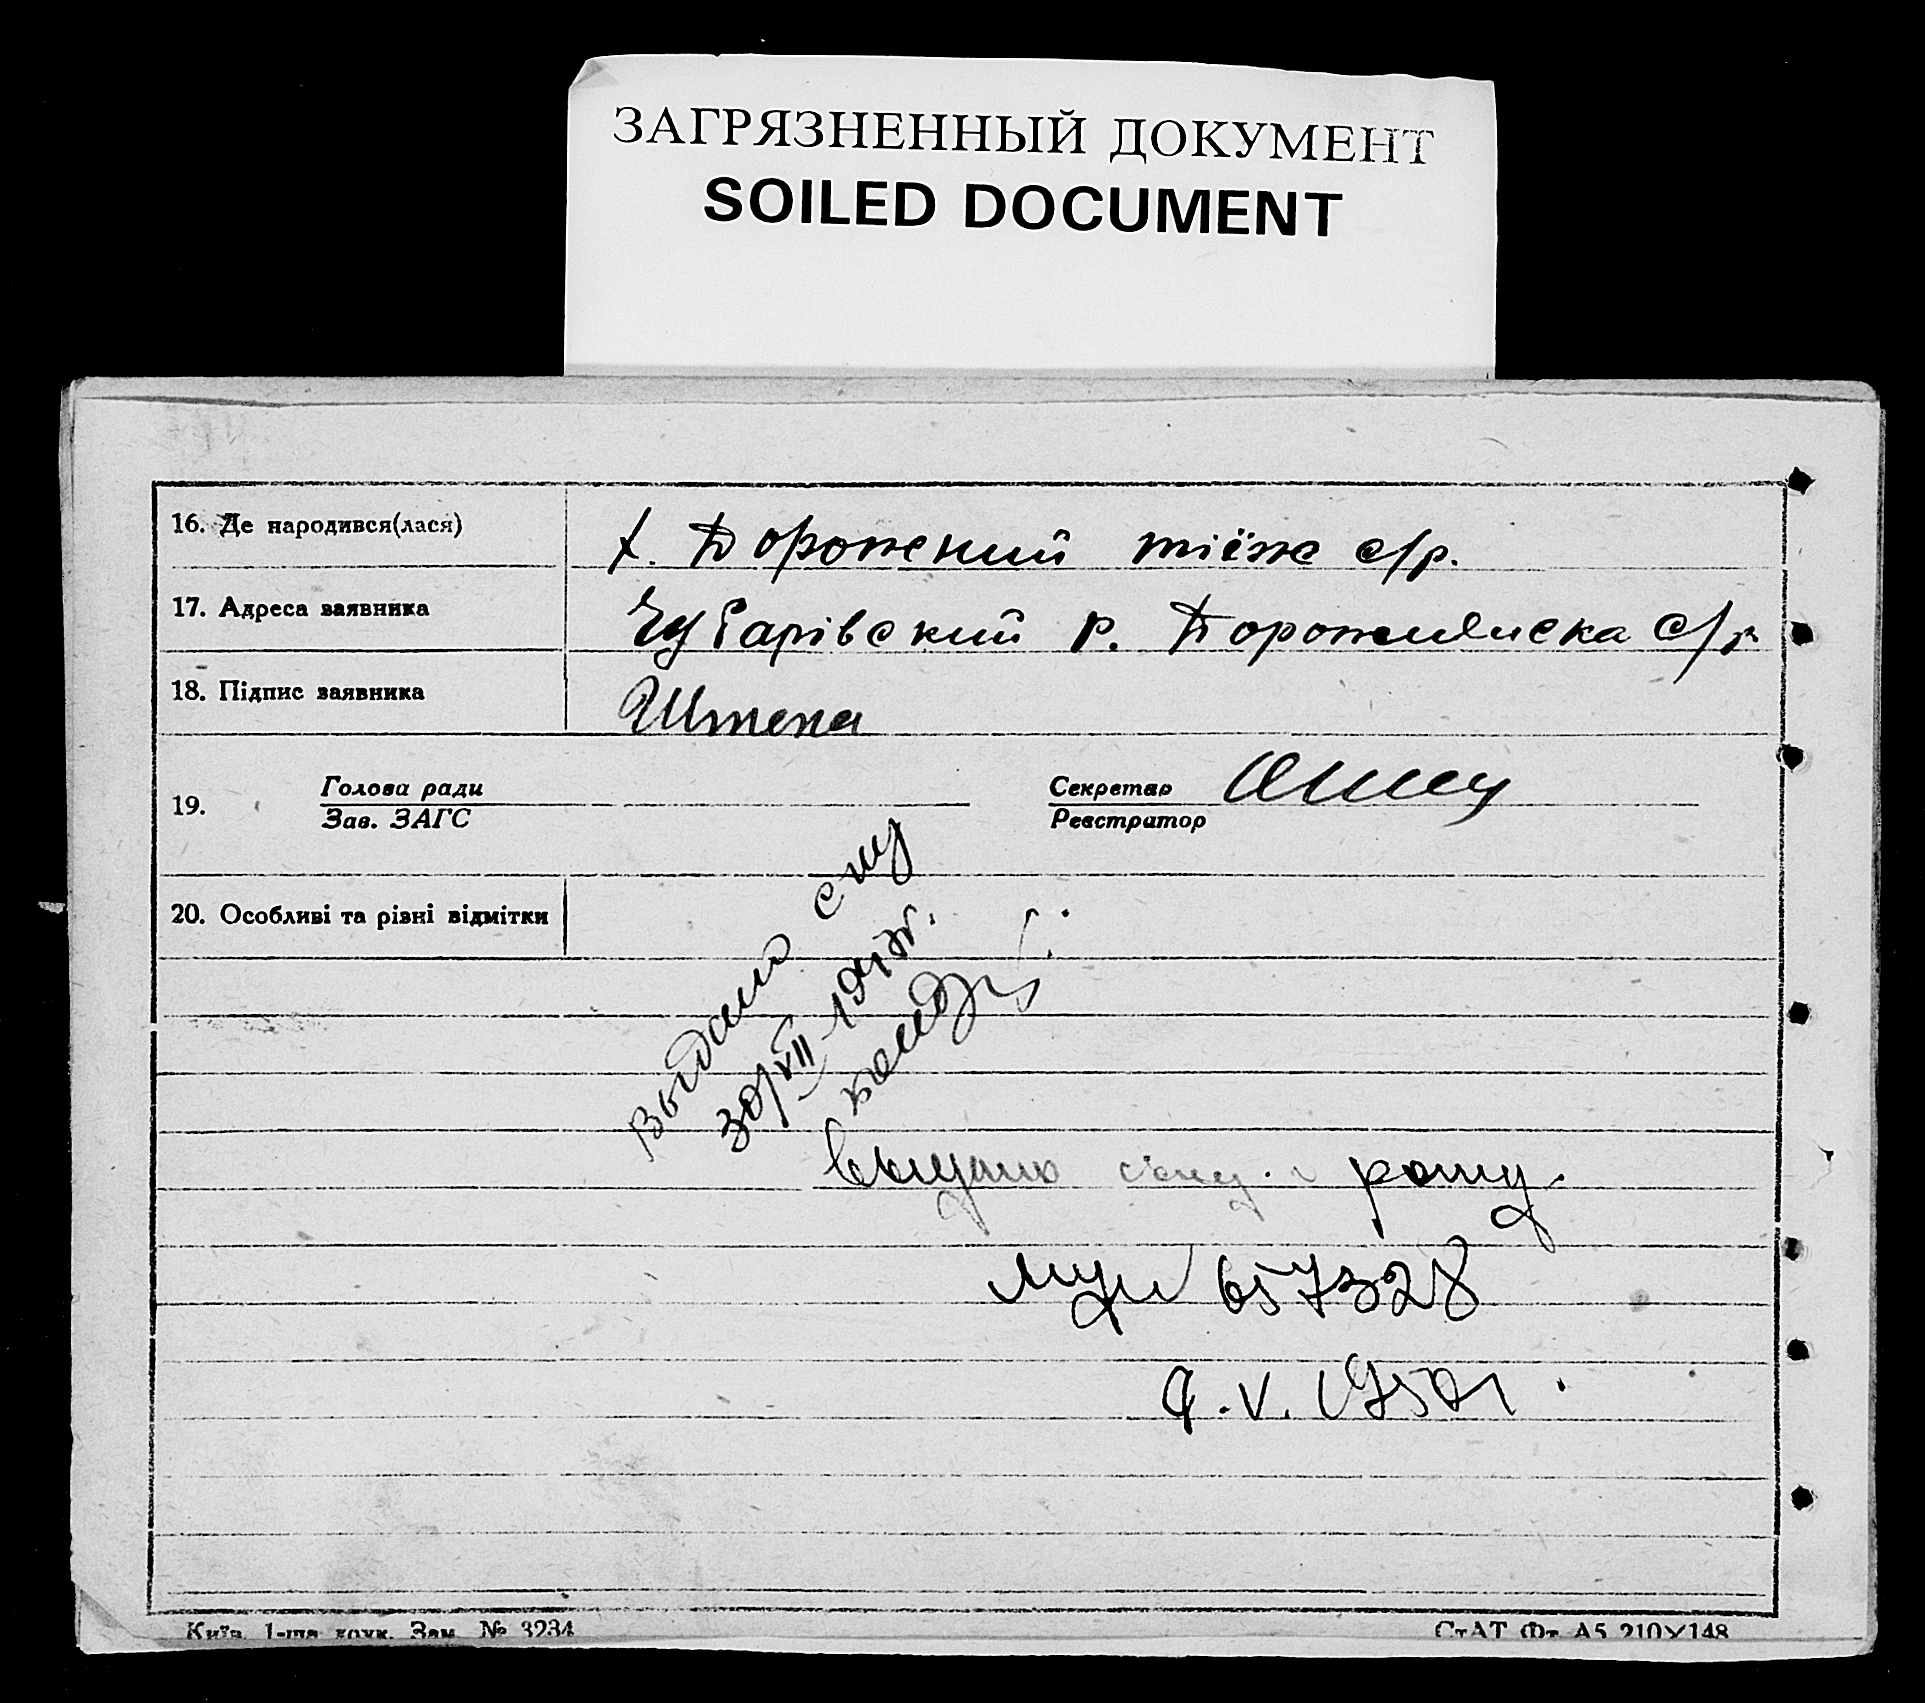 ЗАГРЯЗНЕННЫЙ ДОКУМЕНТ
SOILED DOCUMENT
16. Де народився(лася) х. Дорожений тієж с/р.
17. Адреса заявника Чубарівский р. Дорожнянска с/р
18. Підпис заявника Штепа
19. Голова ради Секретар
Зав. ЗАГС Реєстратор
20. Особливі та різні відмітки
Выдано
30/VII-
выдано рошу.
657328
V. 1950
Київ, 1-ша друк. Зам. № 3234 СтАТ Фт А5 210×148